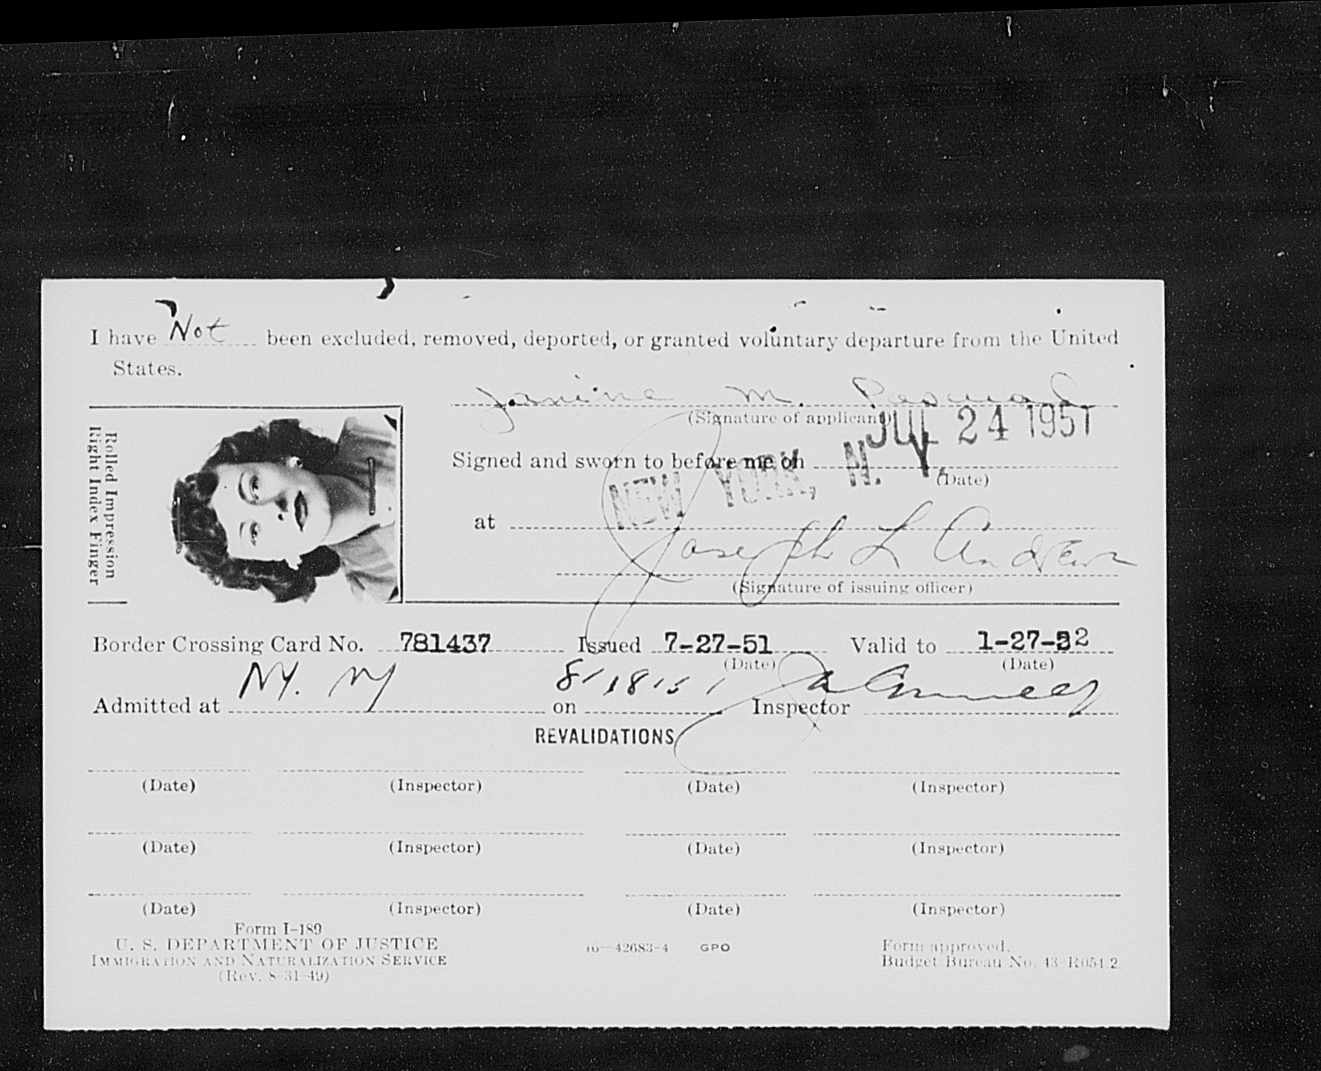 I have Not been excluded, removed, deported, or granted voluntary departure from the United
States.
Janine M.
(Signature of applicant)
JUL 24 1951
Signed and sworn to before me on
(Date)
NEW YORK, N. Y.
at
Joseph L
(Signature of issuing officer)
Rolled Impression
Right Index Finger
Border Crossing Card No. 781437 Issued 7-27-51 Valid to 1-27-52
(Date) (Date)
Admitted at NY. NY on 8/18/51 Inspector
REVALIDATIONS
(Date) (Inspector) (Date) (Inspector)
(Date) (Inspector) (Date) (Inspector)
(Date) (Inspector) (Date) (Inspector)
Form I-189
U. S. DEPARTMENT OF JUSTICE
IMMIGRATION AND NATURALIZATION SERVICE
(Rev. 8-31-49)
16—42683-4 GPO
Form approved.
Budget Bureau No. 43-R054.2